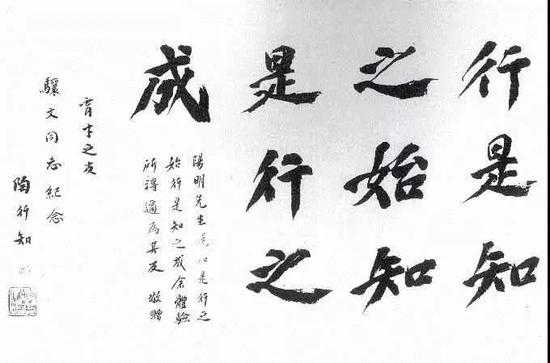 行是知
之始知
是行之
成
陽明先生說知是行之
始行是知之成余體驗
所得適為其反 敬贈
育才之友
驤文同志紀念
陶行知